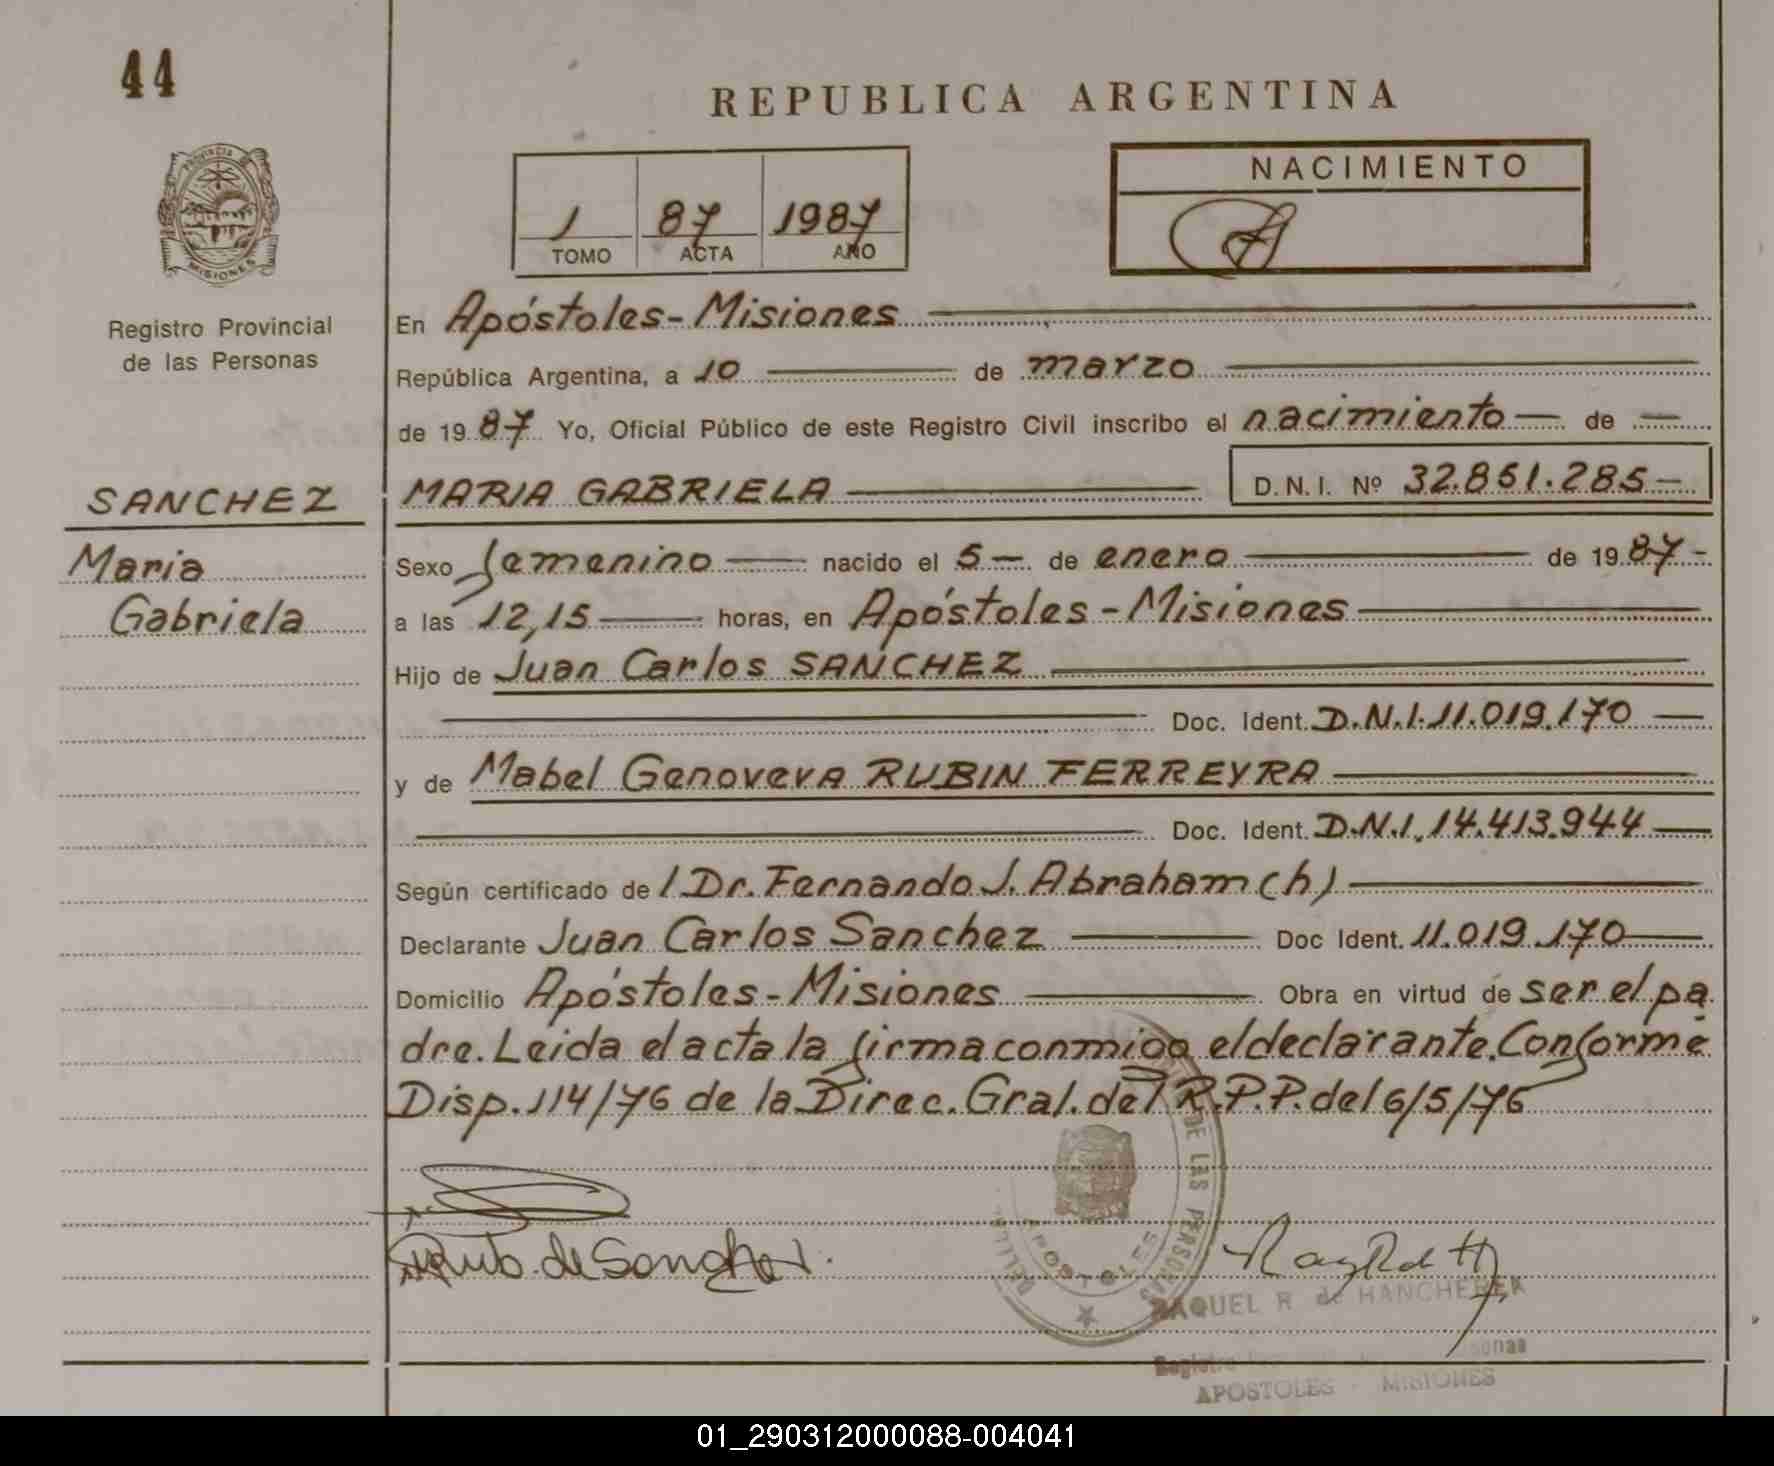 44
REPUBLICA ARGENTINA
PROVINCIA DE
MISIONES
Registro Provincial
de las Personas
1 87 1987
TOMO ACTA AÑO
NACIMIENTO
En Apóstoles-Misiones
República Argentina, a 10 de marzo
de 1987 Yo, Oficial Público de este Registro Civil inscribo el nacimiento de
SANCHEZ
Maria
Gabriela
MARIA GABRIELA D.N.I. Nº 32.851.285-
Sexo femenino nacido el 5 de enero de 1987
a las 12,15 horas, en Apóstoles-Misiones
Hijo de Juan Carlos SANCHEZ
Doc. Ident. D.N.I. 11.019.170
y de Mabel Genoveva RUBIN FERREYRA
Doc. Ident. D.N.I. 14.413.944
Según certificado de / Dr. Fernando J. Abraham (h)
Declarante Juan Carlos Sanchez Doc Ident. 11.019.170
Domicilio Apóstoles-Misiones Obra en virtud de ser el pa
dre. Leida el acta la firma conmigo el declarante. Conforme
Disp. 114/76 de la Direc. Gral. del R.P.P. del 6/5/76
DE LAS PERSONAS
APOSTOLES
de Sanchez
RAQUEL R de HANCHERER
Registro
APOSTOLES - MISIONES
01_290312000088-004041